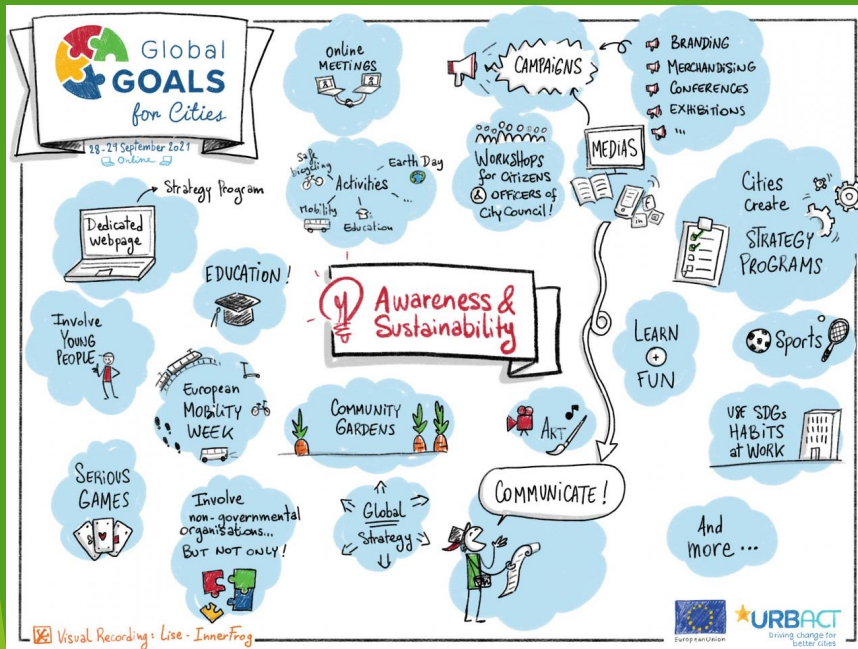 Global
GOALS
for Cities
28-29 September 2021
Online
Online
MEETINGS
CAMPAIGNS
BRANDING
MERCHANDISING
CONFERENCES
EXHIBITIONS
...
MEDIAS
in
WORKSHOPS
for CITIZENS
& OFFICERS of
City COUNCIL!
Safe
bicycling
Earth Day
Activities
...
Mobility
Education
Strategy Program
Dedicated
Webpage
Cities
create
STRATEGY
PROGRAMS
EDUCATION!
Awareness &
Sustainability
Involve
YOUNG
PEOPLE
LEARN
+
FUN
Sports
European
MOBILITY
WEEK
COMMUNITY
GARDENS
ART
USE SDGs
HABITS
at WORK
SERIOUS
GAMES
Involve
non-governmental
organisations...
BUT NOT ONLY!
Global
Strategy
COMMUNICATE!
And
more...
Visual Recording: Lise - InnerFrog
European Union
URBACT
Driving change for
better cities